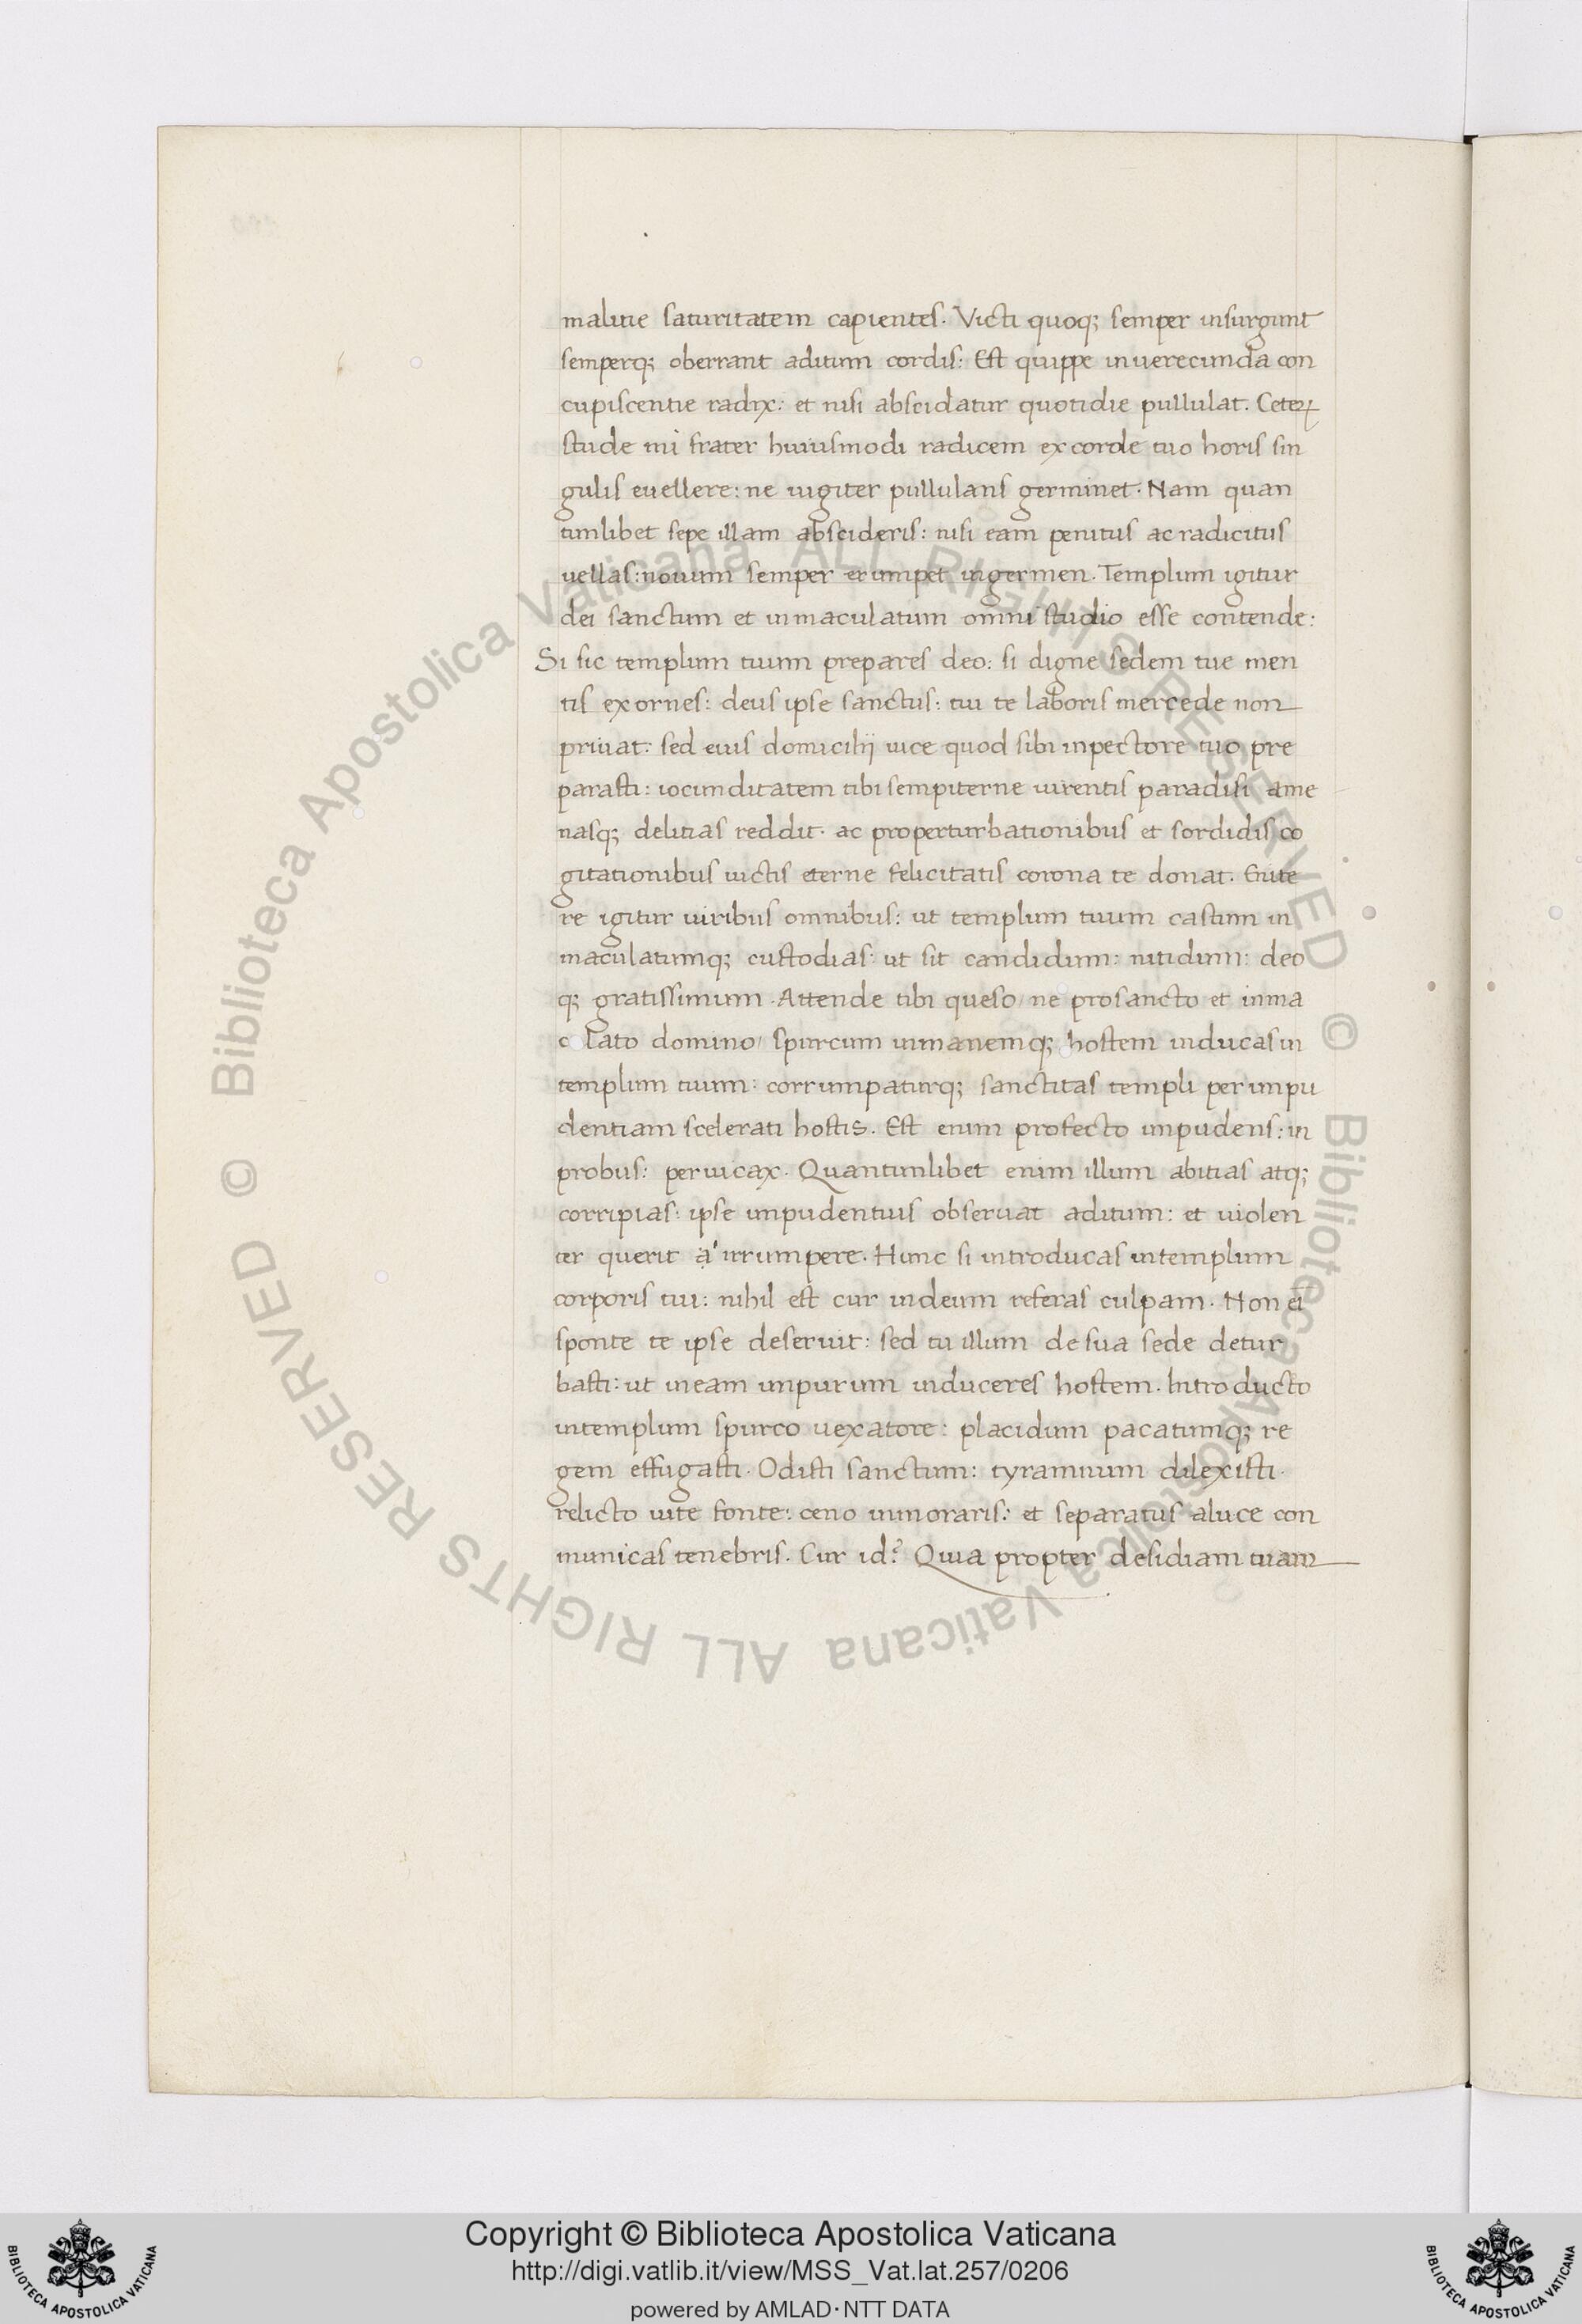 malitie saturitatem capientes. Victi quoq; semper insurgunt
semperq; oberrant aditum cordis: Est quippe inuerecunda con
cupiscentie radix: et nisi abscidatur quotidie pullulat. Ceteꝝ
stude mi frater huiusmodi radicem ex corde tuo horis sin
gulis euellere: ne iugiter pullulans germinet. Nam quan
tumlibet sepe illam abscideris: nisi eam penitus ac radicitus
uellas: nouum semper erumpet in germen. Templum igitur
dei sanctum et inmaculatum omni studio esse contende:
Si sic templum tuum prepares deo: si digne sedem tue men
tis exornes: deus ipse sanctus: tui te laboris mercede non
priuat: sed eius domicilij uice quod sibi in pectore tuo pre
parasti: iocunditatem tibi sempiterne uirentis paradisi ame
nasq; delitias reddit. ac pro perturbationibus et sordidis co
gitationibus uictis eterne felicitatis corona te donat. Enite
re igitur uiribus omnibus: ut templum tuum castum in
maculatumq; custodias: ut sit candidum: nitidum: deo
q; gratissimum. Attende tibi queso/ ne pro sancto et inma
c lato domino/ spurcum inmanemq; hostem inducas in
templum tuum: corrumpaturq; sanctitas templi per inpu
dentiam scelerati hostis. Est enim profecto inpudens: in
probus: peruicax. Quantumlibet enim illum abitias atq;
corripias: ipse inpudentius obseruat aditum: et uiolen
ter querit a' irrumpere. Hunc si introducas in templum
corporis tui: nihil est cur in deum referas culpam. Non ei
sponte te ipse deseruit: sed tu illum de sua sede detur
basti: ut in eam inpurum induceres hostem. Introducto
in templum spurco uexatore: placidum pacatumq; re
gem effugasti. Odisti sanctum: tyrannum dilexisti.
relicto uite fonte: ceno inmoraris: et separatus a luce con
municas tenebris. Cur id? Quia propter desidiam tuam
© Biblioteca Apostolica Vaticana ALL RIGHTS RESERVED
© Biblioteca Apostolica Vaticana ALL RIGHTS RESERVED
BIBLIOTECA APOSTOLICA VATICANA
Copyright © Biblioteca Apostolica Vaticana
http://digi.vatlib.it/view/MSS_Vat.lat.257/0206
powered by AMLAD·NTT DATA
BIBLIOTECA APOSTOLICA VATICANA